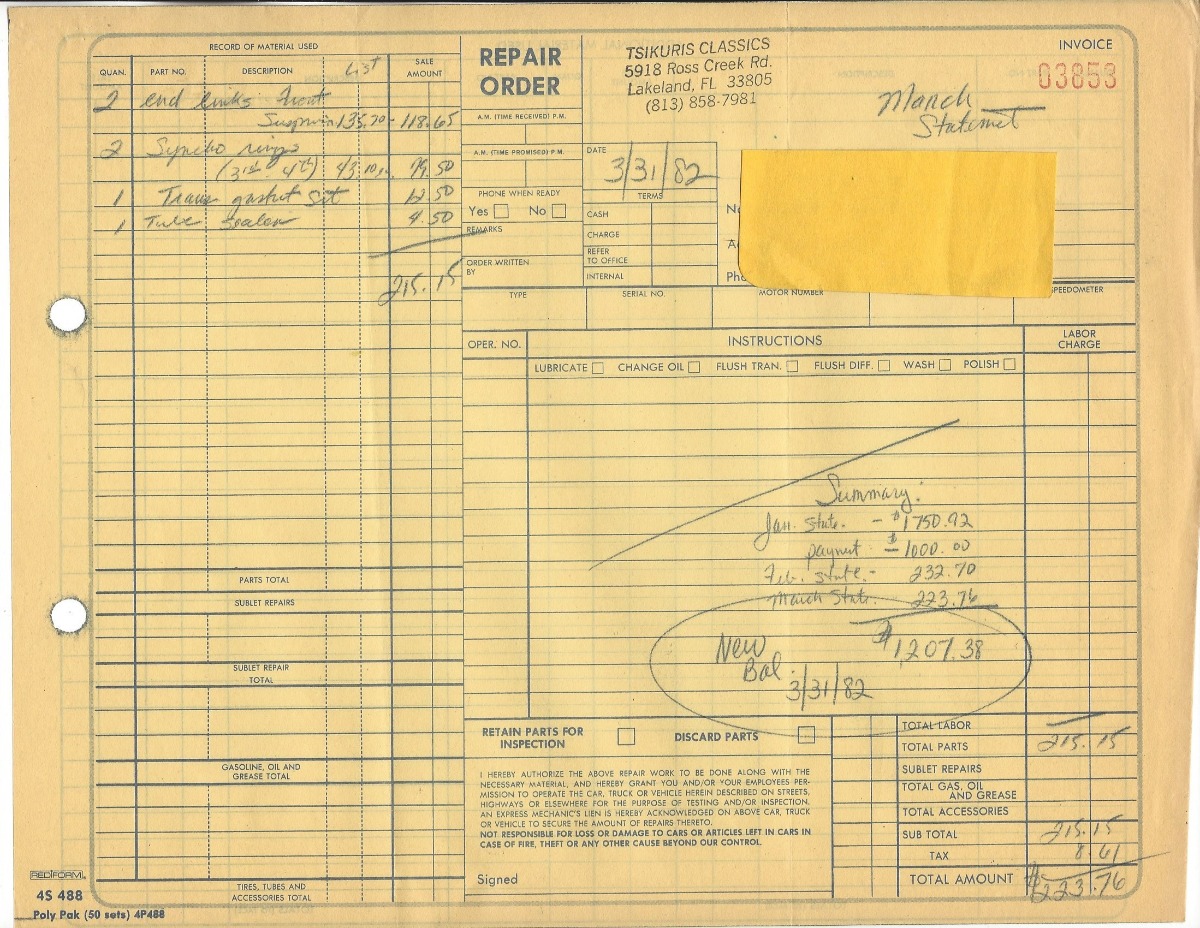 RECORD OF MATERIAL USED
QUAN. PART NO. DESCRIPTION List SALE AMOUNT
2 end links front
135.70 - 118.65
2 Syncho rings
(3rd 4th) 79.50
1 Trans gasket Set 12.50
1 Tube sealer 4.50
215.15
PARTS TOTAL
SUBLET REPAIRS
SUBLET REPAIR TOTAL
GASOLINE, OIL AND GREASE TOTAL
TIRES, TUBES AND ACCESSORIES TOTAL
REDIFORM
4S 488
Poly Pak (50 sets) 4P488
REPAIR ORDER
A.M. (TIME RECEIVED) P.M.
A.M. (TIME PROMISED) P.M.
PHONE WHEN READY
Yes No
REMARKS
ORDER WRITTEN BY
TSIKURIS CLASSICS
5918 Ross Creek Rd.
Lakeland, FL 33805
(813) 858-7981
DATE
3/31/82
TERMS
CASH
CHARGE
REFER TO OFFICE
INTERNAL
INVOICE
03853
March
Statemet
TYPE SERIAL NO. MOTOR NUMBER SPEEDOMETER
OPER. NO. INSTRUCTIONS LABOR CHARGE
LUBRICATE CHANGE OIL FLUSH TRAN. FLUSH DIFF. WASH POLISH
Summary:
Jan. State. - $1750.92
paymet - $1000.00
Feb. State. - 232.70
March State. 223.76
$1,207.38
New Bal.
3/31/82
RETAIN PARTS FOR INSPECTION DISCARD PARTS
I HEREBY AUTHORIZE THE ABOVE REPAIR WORK TO BE DONE ALONG WITH THE
NECESSARY MATERIAL, AND HEREBY GRANT YOU AND/OR YOUR EMPLOYEES PER-
MISSION TO OPERATE THE CAR, TRUCK OR VEHICLE HEREIN DESCRIBED ON STREETS,
HIGHWAYS OR ELSEWHERE FOR THE PURPOSE OF TESTING AND/OR INSPECTION.
AN EXPRESS MECHANIC'S LIEN IS HEREBY ACKNOWLEDGED ON ABOVE CAR, TRUCK
OR VEHICLE TO SECURE THE AMOUNT OF REPAIRS THERETO.
NOT RESPONSIBLE FOR LOSS OR DAMAGE TO CARS OR ARTICLES LEFT IN CARS IN
CASE OF FIRE, THEFT OR ANY OTHER CAUSE BEYOND OUR CONTROL.
Signed
TOTAL LABOR
TOTAL PARTS 215.15
SUBLET REPAIRS
TOTAL GAS, OIL AND GREASE
TOTAL ACCESSORIES
SUB TOTAL 215.15
TAX 8.61
TOTAL AMOUNT $223.76